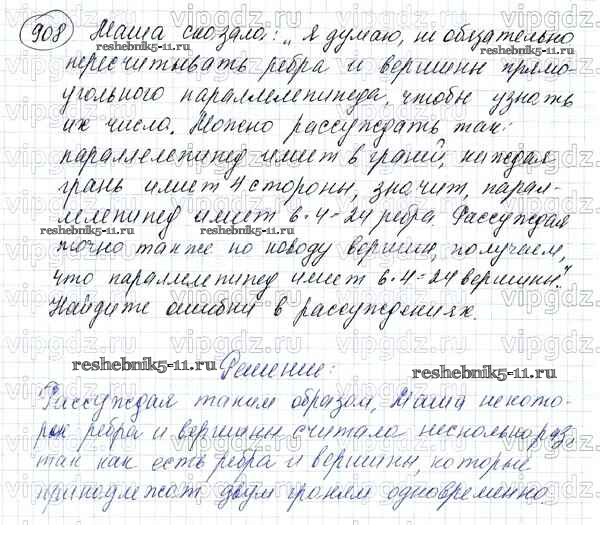 908 Маша сказала: „Я думаю, не обязательно
пересчитывать ребра и вершины прямо-
угольного параллелепипеда, чтобы узнать
их числа. Можно рассуждать так:
параллелепипед имеет 6 граней, каждая
грань имеет 4 стороны, значит, парал-
лелепипед имеет 6·4=24 ребра. Рассуждая
точно также по поводу вершин, получаем,
что параллелепипед имеет 6·4=24 вершины".
Найдите ошибки в рассуждениях.
Решение:
Рассуждая таким образом, Маша некото-
рые ребра и вершины считала несколько раз,
так как есть ребра и вершины, которые
принадлежат двум граням одновременно.
reshebnik5-11.ru
reshebnik5-11.ru
reshebnik5-11.ru
reshebnik5-11.ru
reshebnik5-11.ru
reshebnik5-11.ru
vipgdz.ru